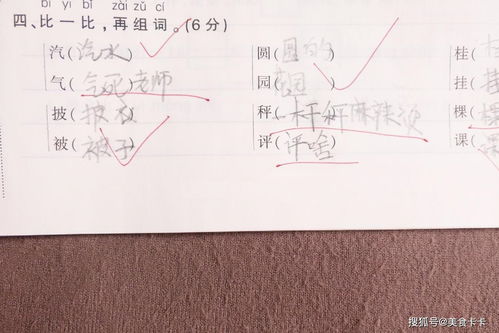 bǐ yi bǐ zài zǔ cí
四、比一比,再组词。(6分)
汽(汽水) 圆(圆的) 桂(
气(气死)老师 园( 园) 挂(
披(披衣) 秤(一杆秤麻辣烫 棵(
被(被子) 评(评啥) 课(
搜狐号@美食卡卡